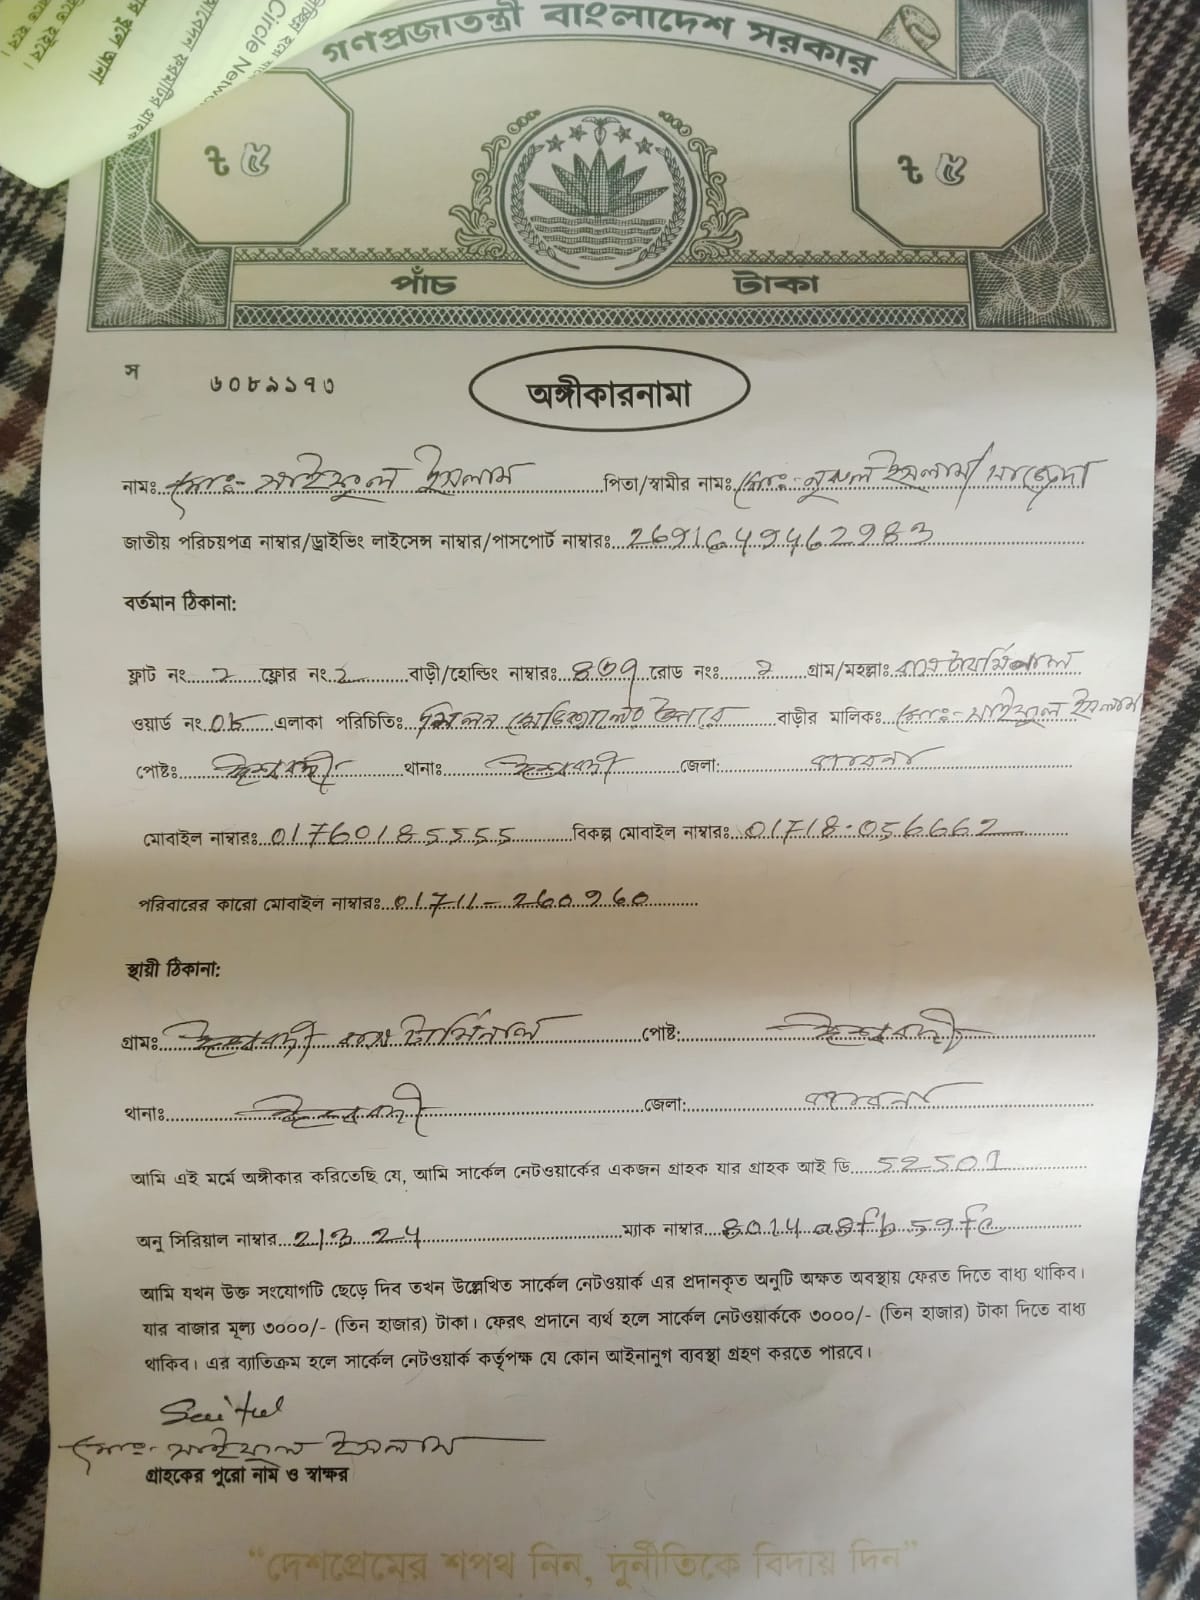 গণপ্রজাতন্ত্রী বাংলাদেশ সরকার
৳ ৫ ৳ ৫
পাঁচ টাকা
স ৬০৮৯১৭৩
অঙ্গীকারনামা
নামঃ মোঃ- সাইফুল ইসলাম পিতা/স্বামীর নাম: মোঃ- নুরুল ইসলাম/
জাতীয় পরিচয়পত্র নাম্বার/ড্রাইভিং লাইসেন্স নাম্বার/পাসপোর্ট নাম্বারঃ
বর্তমান ঠিকানা:
ফ্লাট নং ২ ফ্লোর নং ২ বাড়ী/হোল্ডিং নাম্বারঃ রোড নংঃ গ্রাম/মহল্লাঃ বাস টার্মিনাল
ওয়ার্ড নং এলাকা পরিচিতিঃ বাড়ীর মালিকঃ মোঃ- সাইফুল ইসলাম
পোষ্টঃ ঈশ্বরদী থানাঃ ঈশ্বরদী জেলা: পাবনা
মোবাইল নাম্বারঃ 01760185555 বিকল্প মোবাইল নাম্বারঃ 01718-056662
পরিবারের কারো মোবাইল নাম্বারঃ 01711-260960
স্থায়ী ঠিকানা:
গ্রামঃ ঈশ্বরদী বাস টার্মিনাল পোষ্ট: ঈশ্বরদী
থানাঃ ঈশ্বরদী জেলা: পাবনা
আমি এই মর্মে অঙ্গীকার করিতেছি যে, আমি সার্কেল নেটওয়ার্কের একজন গ্রাহক যার গ্রাহক আই ডি
অনু সিরিয়াল নাম্বার ম্যাক নাম্বার
আমি যখন উক্ত সংযোগটি ছেড়ে দিব তখন উল্লেখিত সার্কেল নেটওয়ার্ক এর প্রদানকৃত অনুটি অক্ষত অবস্থায় ফেরত দিতে বাধ্য থাকিব।
যার বাজার মূল্য ৩০০০/- (তিন হাজার) টাকা। ফেরৎ প্রদানে ব্যর্থ হলে সার্কেল নেটওয়ার্ককে ৩০০০/- (তিন হাজার) টাকা দিতে বাধ্য
থাকিব। এর ব্যাতিক্রম হলে সার্কেল নেটওয়ার্ক কর্তৃপক্ষ যে কোন আইনানুগ ব্যবস্থা গ্রহণ করতে পারবে।
Saiful
মোঃ- সাইফুল ইসলাম
গ্রাহকের পুরো নাম ও স্বাক্ষর
“দেশপ্রেমের শপথ নিন, দুর্নীতিকে বিদায় দিন”